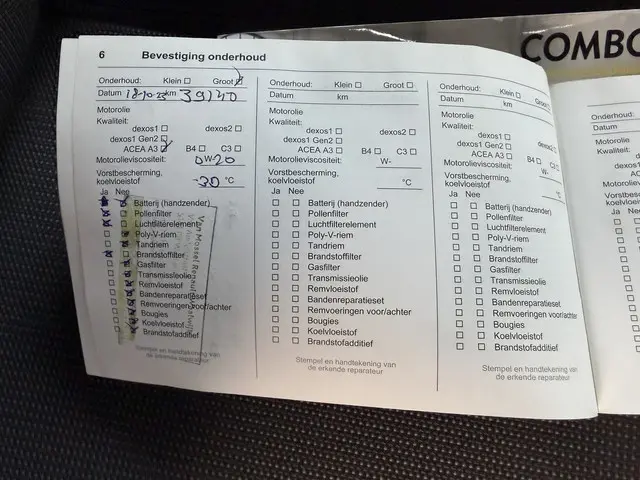 COMBO
6 Bevestiging onderhoud
Onderhoud: Klein Groot
Datum 18-10-23 km 39140
Motorolie
Kwaliteit:
dexos1 dexos2
dexos1 Gen2
ACEA A3 B4 C3
Motorolieviscositeit: 0W-20
Vorstbescherming,
koelvloeistof -30 °C
Ja Nee
Batterij (handzender)
Pollenfilter
Luchtfilterelement
Poly-V-riem
Tandriem
Brandstoffilter
Gasfilter
Transmissieolie
Remvloeistof
Bandenreparatieset
Remvoeringen voor/achter
Bougies
Koelvloeistof
Brandstofadditief
Stempel en handtekening van
de erkende reparateur
Van Mossel
Onderhoud: Klein Groot
Datum km
Motorolie
Kwaliteit:
dexos1 dexos2
dexos1 Gen2
ACEA A3 B4 C3
Motorolieviscositeit: W-
Vorstbescherming,
koelvloeistof °C
Ja Nee
Batterij (handzender)
Pollenfilter
Luchtfilterelement
Poly-V-riem
Tandriem
Brandstoffilter
Gasfilter
Transmissieolie
Remvloeistof
Bandenreparatieset
Remvoeringen voor/achter
Bougies
Koelvloeistof
Brandstofadditief
Stempel en handtekening van
de erkende reparateur
Onderhoud: Klein Groot
Datum km
Motorolie
Kwaliteit:
dexos1
dexos1 Gen2
ACEA A3 B4
Motorolieviscositeit: W-
Vorstbescherming,
koelvloeistof
Ja Nee
Batterij (handzender)
Pollenfilter
Luchtfilterelement
Poly-V-riem
Tandriem
Brandstoffilter
Gasfilter
Transmissieolie
Remvloeistof
Bandenreparatieset
Remvoeringen voor/achter
Bougies
Koelvloeistof
Brandstofadditief
Stempel en handtekening van
de erkende reparateur
Onderhoud:
Datum
Motorolie
Kwaliteit:
Ja